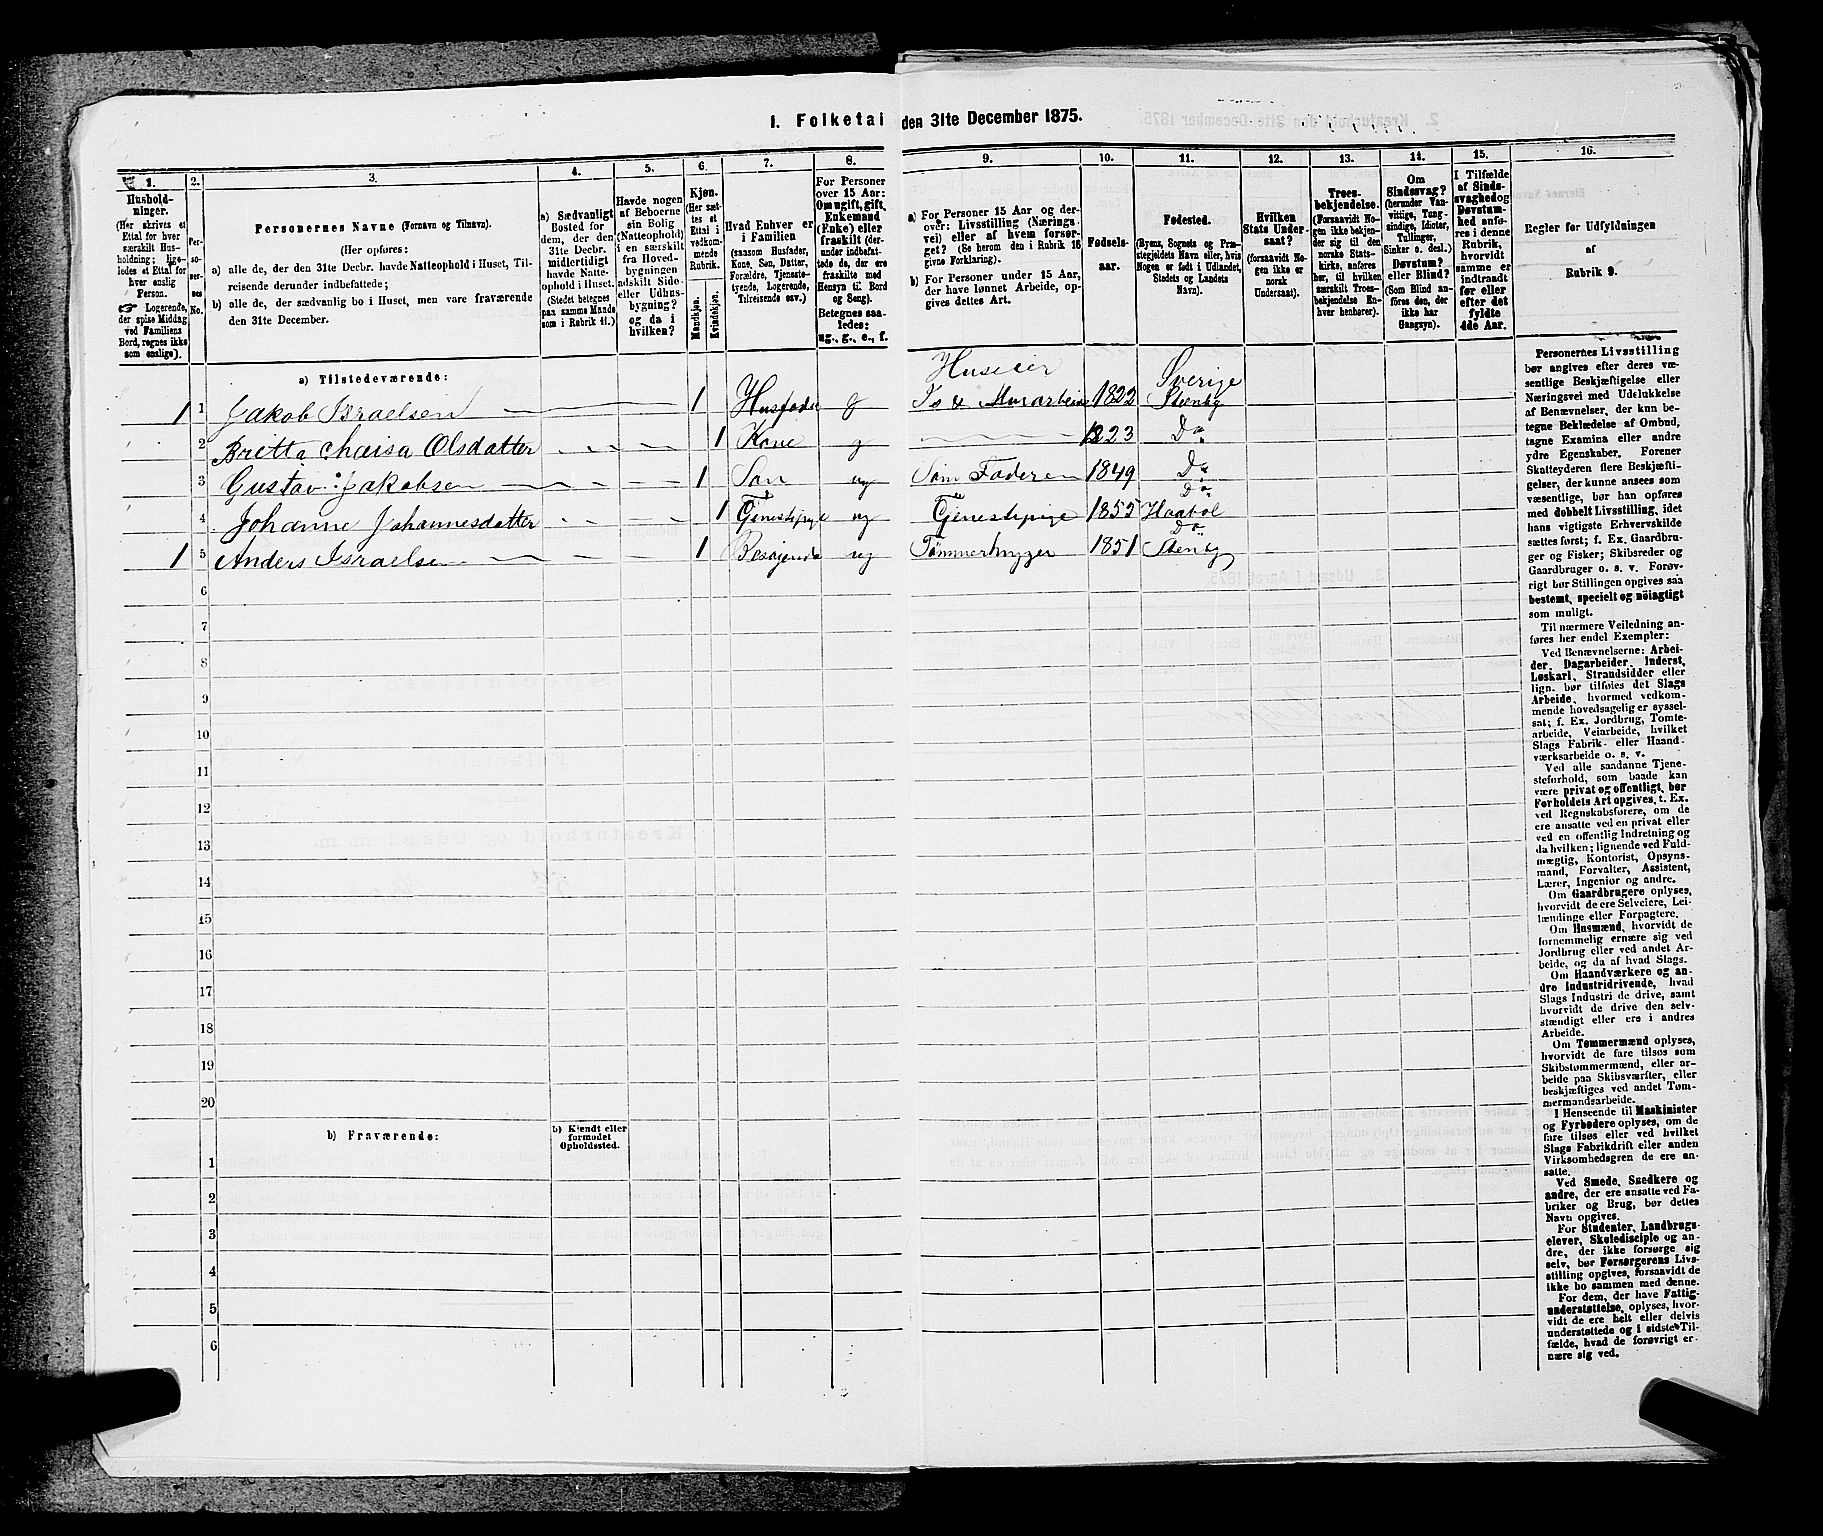 1. Folketal den 31te December 1875.
1. 2. 3. 4. 5. 6. 7. 8. 9. 10. 11. 12. 13. 14. 15. 16.
Hushold-
ninger.
(Her skrives et
Ettal for hver
særskilt Hus-
holdning; lige-
ledes et Ettal for
hver enslig
Person.
☞ Logerende,
der spise Middag
ved Familiens
Bord, regnes ikke
som enslige).
Per-
so-
ner-
nes
No.
Personernes Navne (Fornavn og Tilnavn).
(Her opføres:
a) alle de, der den 31te Decbr. havde Natteophold i Huset, Til-
reisende derunder indbefattede;
b) alle de, der sædvanlig bo i Huset, men vare fraværende
den 31te December.
a) Sædvanligt
Bosted for
dem, der den
31te Decbr.
midlertidigt
havde Natte-
ophold i Huset.
(Stedet betegnes
paa samme Maade
som i Rubrik 11.)
Havde nogen
af Beboerne
sin Bolig
(Natteophold)
i en særskilt
fra Hoved-
bygningen
adskilt Side-
eller Udhus-
bygning?
og da i
hvilken?
Kjøn.
(Her sæt-
tes et
Ettal i
vedkom-
mende
Rubrik.
Mandkjøn.
Kvindekjøn.
Hvad Enhver er
i Familien
(saasom Husfader,
Kone, Søn, Datter,
Forældre, Tjeneste-
tyende, Logerende,
Tilreisende osv.)
For Personer
over 15 Aar:
Om ugift, gift,
Enkemand
(Enke) eller
fraskilt (der-
under indbefat-
tede de, der ere
fraskilte med
Hensyn til Bord
og Seng).
Betegnes saa-
ledes:
ug., g., e., f.
a) For Personer 15 Aar og der-
over: Livsstilling (Nærings-
vei) eller af hvem forsør-
get? (Se herom den i Rubrik 16
givne Forklaring).
b) For Personer under 15 Aar,
der have lønnet Arbeide, op-
gives dettes Art.
Fødsels-
aar.
Fødested.
(Byens, Sognets og Præ-
stegjeldets Navn eller, hvis
Nogen er født i Udlandet,
Stedets og Landets
Navn).
Hvilken
Stats Under-
saat?
(forsaavidt No-
gen ikke er
norsk
Undersaat).
Troes-
bekjendelse.
(Forsaavidt No-
gen ikke bekjen-
der sig til den
norske Stats-
kirke, anføres
her, til hvilken
særskilt Troes-
bekjendelse En-
hver henhører).
Om
Sindssvag?
(herunder Van-
vittige, Tung-
sindige, Idioter,
Tullinger,
Sinker o. desl.)
Døvstum?
eller Blind?
(Som Blind an-
føres den, der
ikke har
Gangsyn).
I Tilfælde
af Sinds-
svaghed og
Døvstum-
hed anfø-
res i denne
Rubrik,
hvorvidt
samme er
indtraadt
før eller
efter det
fyldte
4de Aar.
Regler for Udfyldningen
af
Rubrik 9.
a) Tilstedeværende:
Huseier Sverige
1 1 Jakob Israelsen 1 Husfader g Jo & Murarbeide 1822 Stenby
2 Britta Maisa Olsdatter 1 Kone g 1823 Do
3 Gustav Jakobsen 1 Søn ug Som Faderen 1849 Do
Do
4 Johanne Johannesdatter 1 Tjenestepige ug Tjenestepige 1855 Haabol
Do
1 5 Anders Israelsen 1 Besøgende ug Tømmerhugger 1851 Stenby
6
7
8
9
10
11
12
13
14
15
16
17
18
19
20
b) Fraværende:
b) Kjendt eller
formodet
Opholdssted.
1
2
3
4
5
6
Personernes Livsstilling
bør angives efter deres væ-
sentlige Beskjæftigelse eller
Næringsvei med Udelukkelse
af Benævnelser, der kun be-
tegne Beklædelse af Ombud,
tagne Examina eller andre
ydre Egenskaber. Forener
Skatteyderen flere Beskjæfti-
gelser, der kunne ansees som
væsentlige, bør han opføres
med dobbelt Livsstilling, idet
hans vigtigste Erhvervskilde
sættes først; f. Ex. Gaardbru-
ger og Fisker; Skibsreder og
Gaardbruger o. s. v. Forøv-
rigt bør Stillingen opgives saa
bestemt, specielt og nøiagtigt
som muligt.
Til nærmere Veiledning an-
føres her endel Exempler:
Ved Benævnelserne: Arbei-
der, Dagarbeider, Inderst,
Løskarl, Strandsidder eller
lign. bør tilføies det Slags
Arbeide, hvormed vedkom-
mende hovedsagelig er syssel-
sat; f. Ex. Jordbrug, Tomte-
arbeide, Veiarbeide, hvilket
Slags Fabrik- eller Haand-
værksarbeide o. s. v.
Ved alle saadanne Tjene-
steforhold, som baade kan
være privat og offentligt, bør
Forholdets Art opgives, t. Ex.
ved Regnskabsførere, om de
ere ansatte ved en privat eller
ved en offentlig Indretning og
da hvilken; lignende ved Fuld-
mægtig, Kontorist, Opsyns-
mand, Forvalter, Assistent,
Lærer, Ingeniør og andre.
Om Gaardbrugere oplyses,
hvorvidt de ere Selveiere, Lei-
lændinge eller Forpagtere.
Om Husmænd, hvorvidt de
fornemmelig ernære sig ved
Jordbrug eller ved andet Ar-
beide, og da af hvad Slags.
Om Haandværkere og an-
dre Industridrivende, hvad
Slags Industri de drive, samt
hvorvidt de drive den selv-
stændigt eller ere i andres
Arbeide.
Om Tømmermænd oplyses,
hvorvidt de fare tilsøs som
Skibstømmermænd, eller ar-
beide paa Skibsværfter, eller
beskjæftiges ved andet Tøm-
mermandsarbeide.
I Henseende til Maskinister
og Fyrbødere oplyses, om de
fare tilsøs eller ved hvilket
Slags Fabrikdrift eller anden
Virksomhedsgren de ere an-
satte.
Ved Smede, Snedkere og
andre, der ere ansatte ved Fa-
briker og Brug, bør dettes
Navn opgives.
For Studenter, Landbrugs-
elever, Skoledisciple og an-
dre, der ikke forsørge sig
selv, bør Forsørgerens Livs-
stilling opgives, forsaavidt de
ikke bo sammen med denne.
For dem, der have Fattig-
understøttelse, oplyses, hvor-
vidt de ere helt eller delvis
understøttede og i sidste Til-
fælde, hvad de forøvrigt er-
nære sig ved.